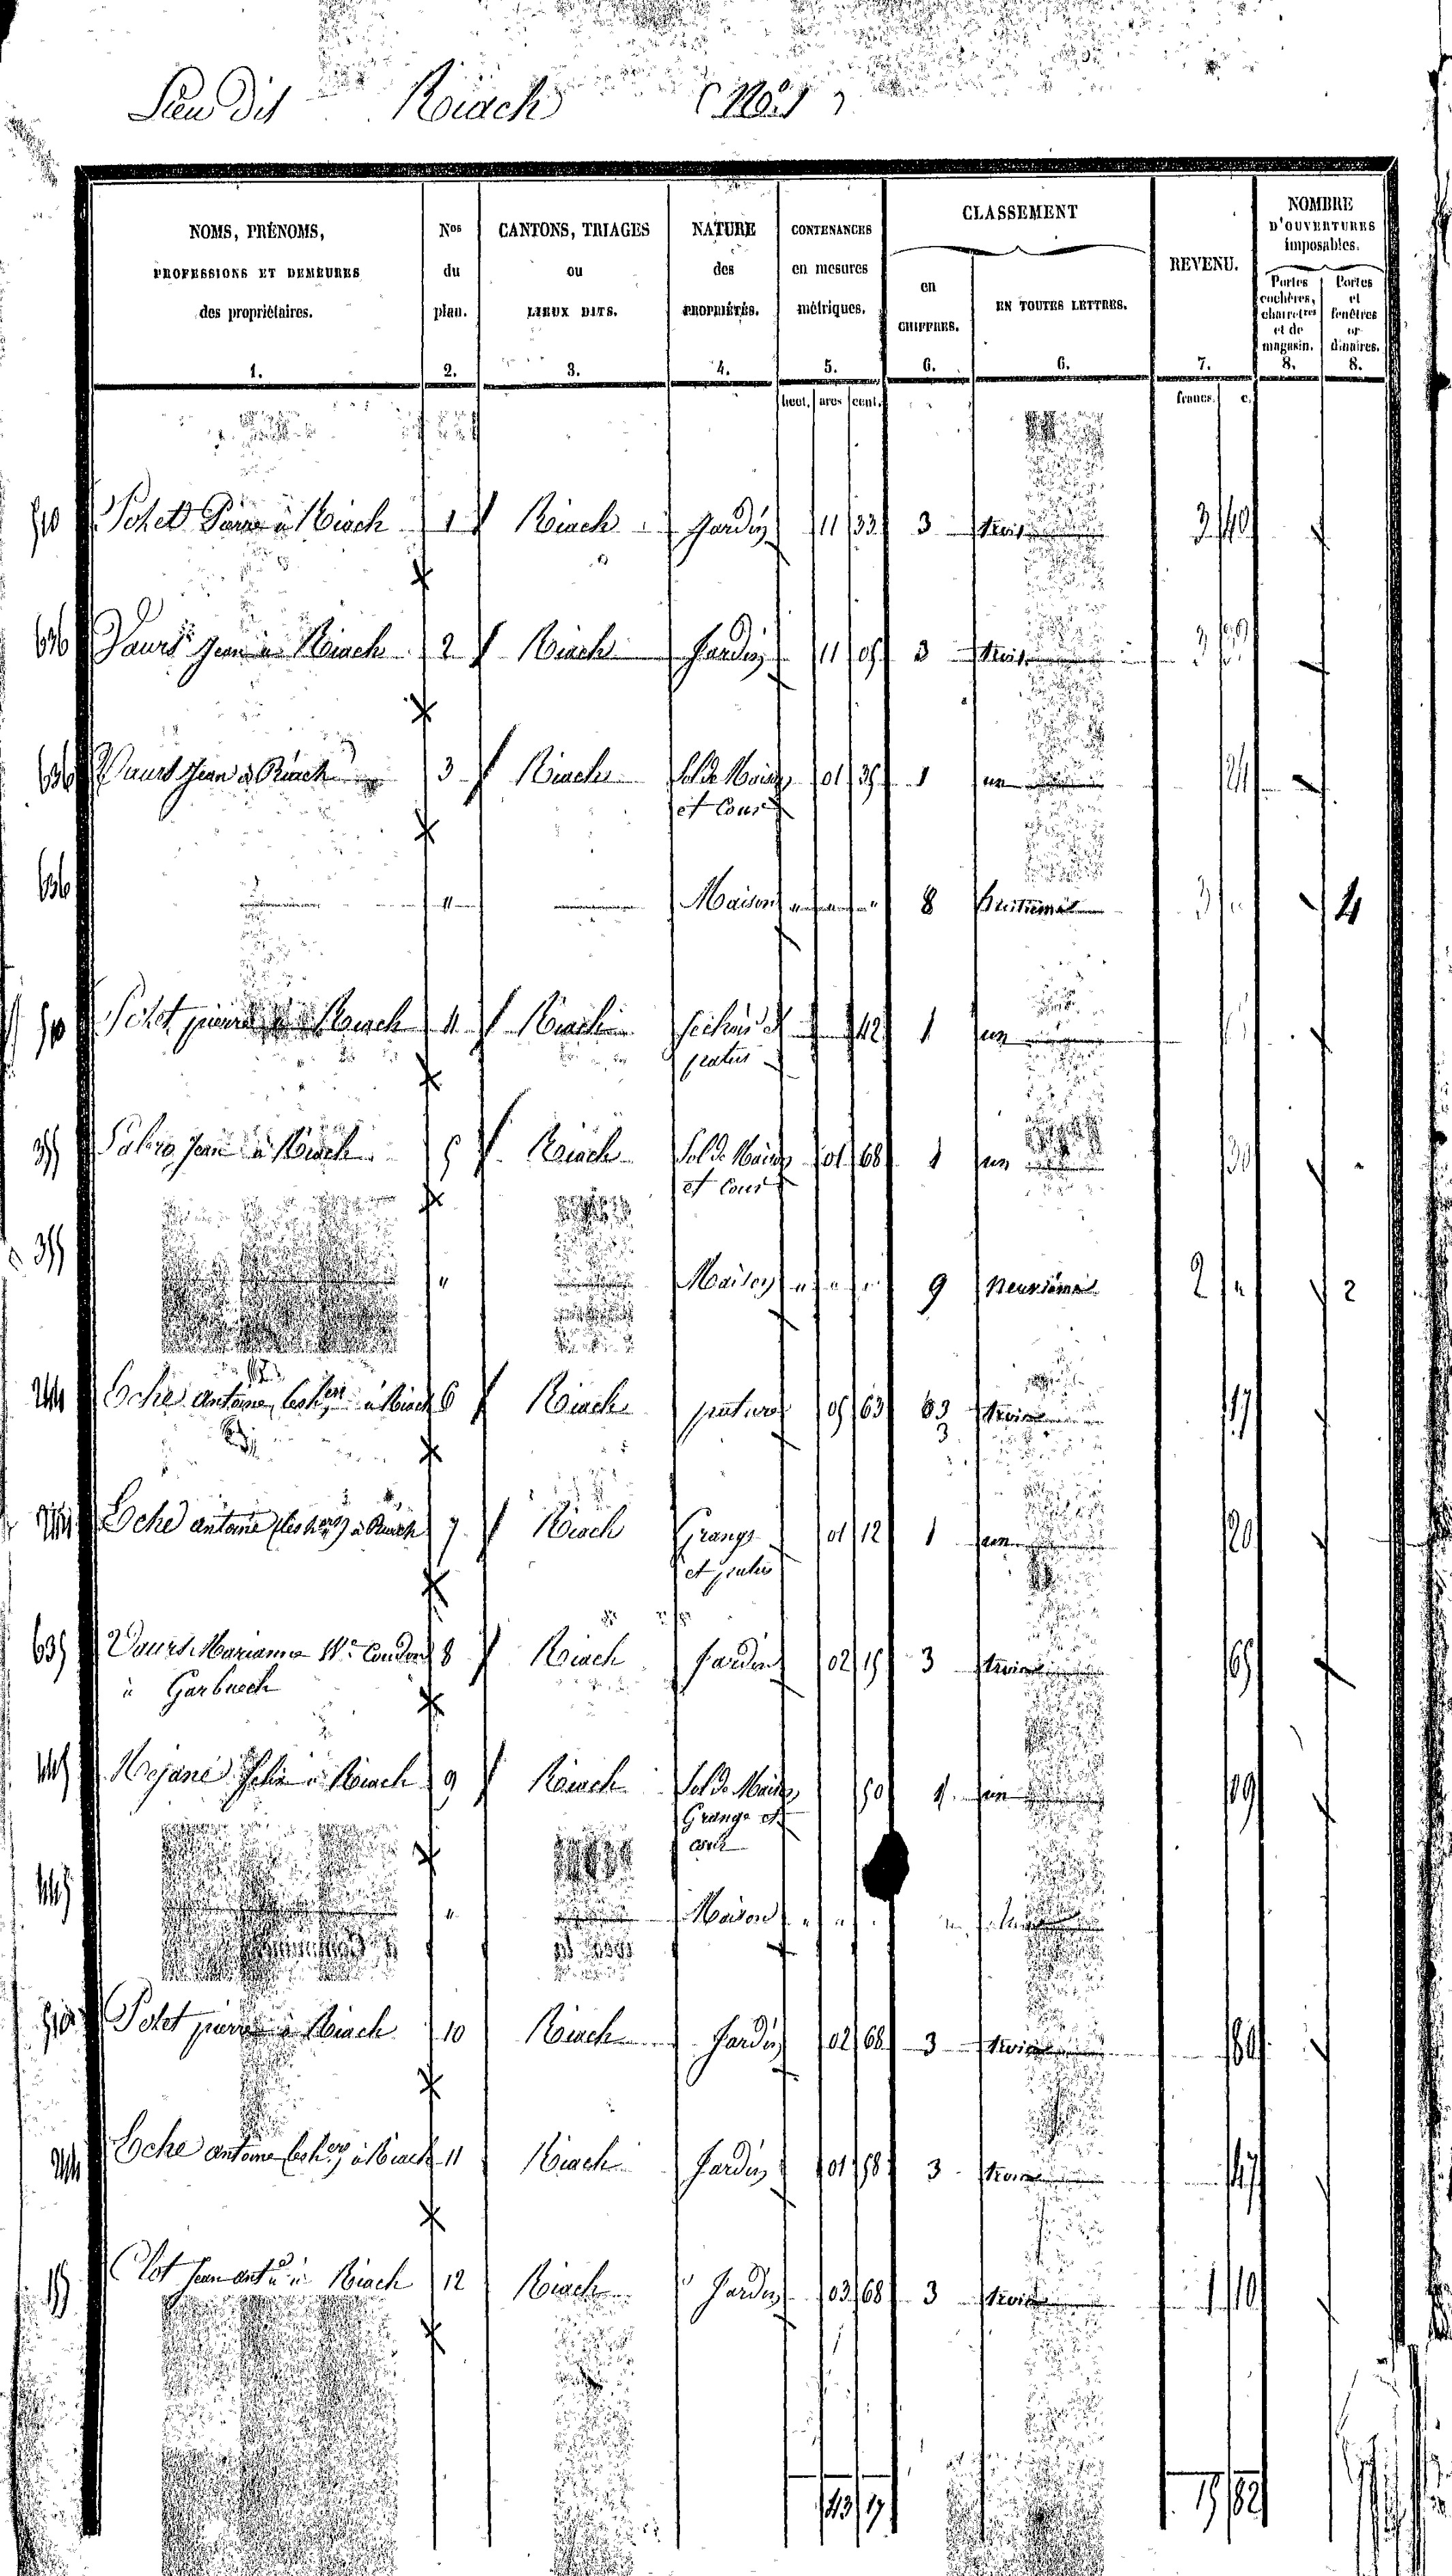 Lieu Dit Roïach (No. 1)
NOMS, PRÉNOMS, PROFESSIONS ET DEMEURES des propriétaires. 1.
Nos du plan. 2.
CANTONS, TRIAGES ou LIEUX DITS. 3.
NATURE des PROPRIÉTÉS. 4.
CONTENANCES en mesures métriques. 5.
CLASSEMENT
en CHIFFRES. 6.
EN TOUTES LETTRES. 6.
REVENU. 7.
NOMBRE D'OUVERTURES imposables.
Portes cochères, charretres et de magasin. 8.
Portes et fenêtres or- dinaires. 8.
hect. ares cent. francs. c.
510 Potet Pierre à Roiach 1 Roiach Jardin 11 33 3 trois 3 40
636 Vaurs Jean à Roiach 2 Roiach Jardin 11 05 3 trois 3
636 Vaurs Jean à Roiach 3 Roiach Sol de Maison 01 35 1 un 24
et Cour
636 " Maison " " " 8 huitième 3 " 4
510 Potet pierre à Roiach 4 Roiach 42 1 un
patus
355 Jean à Roiach 5 Roiach Sol de Maison 01 68 1 un 30
et Cour
355 " Maison " " " 9 Neuvième 2 " 2
244 Eche antoine les hers à Roiach 6 Roiach pature 05 63 63 trois 17
3
244 Eche antoine (les hers) à Roiach 7 Roiach Grange 01 12 1 un 20
et patus
635 Vaurs Marianne Ve Coudon 8 Roiach Jardin 02 15 3 trois 65
à Garbuech
445 Mejane à Roiach 9 Roiach Sol de Maison 50 1 un 09
Grange et
cour
445 " Maison " "
510 Potet pierre à Roiach 10 Roiach Jardin 02 68 3 trois 80
244 Eche antoine les hers à Roiach 11 Roiach Jardin 01 58 3 trois 47
155 Clot Jean ante à Roiach 12 Roiach Jardin 03 68 3 trois 1 10
43 17 15 82